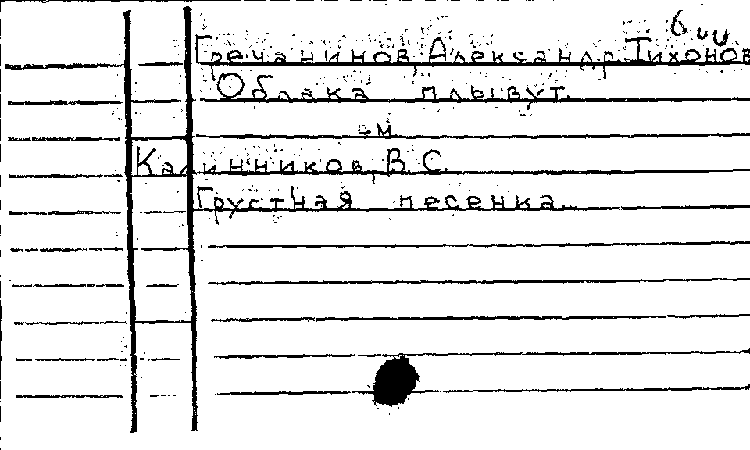 Гречанинов, Александр Тихонов
Облака плывут.
см.
Калинников, В.С.
Грустная песенка.